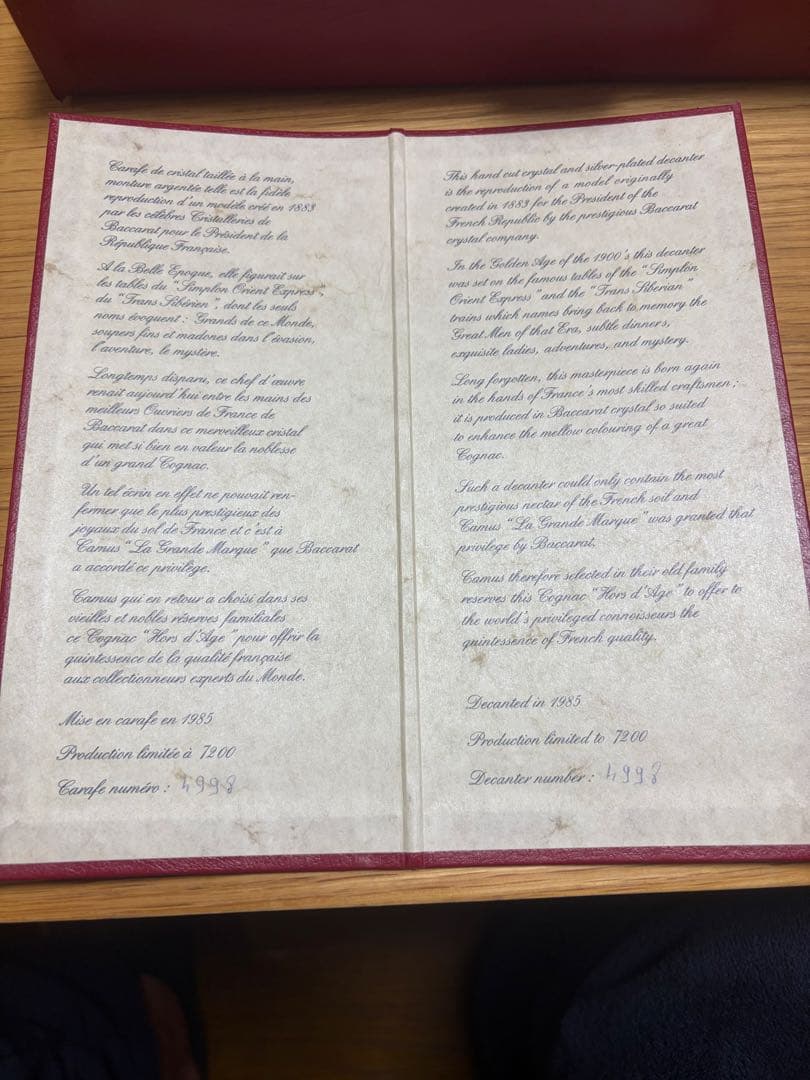 Carafe de cristal taillée à la main,
monture argentée telle est la fidèle
reproduction d'un modèle créé en 1883
par les célèbres Cristalleries de
Baccarat pour le Président de la
République Française.
A la Belle Epoque, elle figurait sur
les tables du "Simplon Orient Express",
du "Trans Sibérien", dont les seuls
noms évoquent : Grands de ce Monde,
soupers fins et madones dans l'évasion,
l'aventure, le mystère.
Longtemps disparu, ce chef d'œuvre
renait aujourd'hui entre les mains des
meilleurs Ouvriers de France de
Baccarat dans ce merveilleux cristal
qui met si bien en valeur la noblesse
d'un grand Cognac.
Un tel écrin en effet ne pouvait ren-
fermer que le plus prestigieux des
joyaux du sol de France et c'est à
Camus "La Grande Marque" que Baccarat
a accordé ce privilège.
Camus qui en retour a choisi dans ses
vieilles et nobles réserves familiales
ce Cognac "Hors d'Age" pour offrir la
quintessence de la qualité française
aux collectionneurs experts du Monde.
Mise en carafe en 1985
Production limitée à 7200
Carafe numéro : 4998
This hand cut crystal and silver-plated decanter
is the reproduction of a model originally
created in 1883 for the President of the
French Republic by the prestigious Baccarat
crystal company.
In the Golden Age of the 1900's this decanter
was set on the famous tables of the "Simplon
Orient Express" and the "Trans Siberian"
trains which names bring back to memory the
Great Men of that Era, subtle dinners,
exquisite ladies, adventures, and mystery.
Long forgotten, this masterpiece is born again
in the hands of France's most skilled craftsmen ;
it is produced in Baccarat crystal so suited
to enhance the mellow colouring of a great
Cognac.
Such a decanter could only contain the most
prestigious nectar of the French soil and
Camus "La Grande Marque" was granted that
privilege by Baccarat.
Camus therefore selected in their old family
reserves this Cognac "Hors d'Age" to offer to
the world's privileged connoisseurs the
quintessence of French quality.
Decanted in 1985
Production limited to 7200
Decanter number : 4998